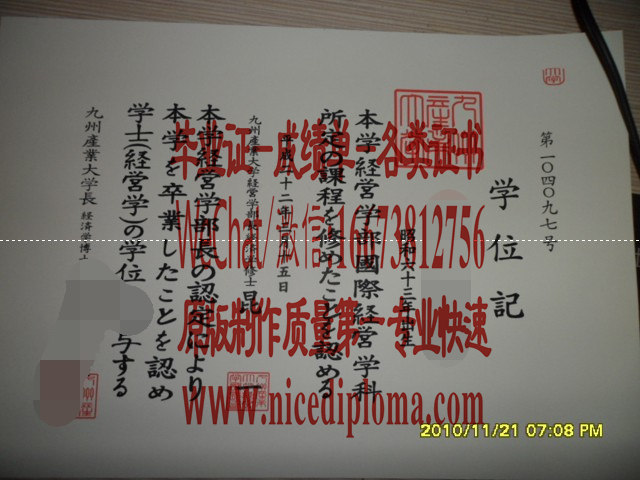 学位記
第一〇四〇九七号
昭和六十三年
本学経営学部國際経営学科
所定の課程を修めたことを認める
平成二十二年三月十五日
九州産業大学経営学部長
本学経営学部長の認定により
本学を卒業したことを認め
学士(経営学)の学位
与する
九州産業大学長 経済学博士
毕业证—成绩单—各类证书
WeChat/微信:16673812756
原版制作质量第一专业快速
www.nicediploma.com
2010/11/21 07:08 PM